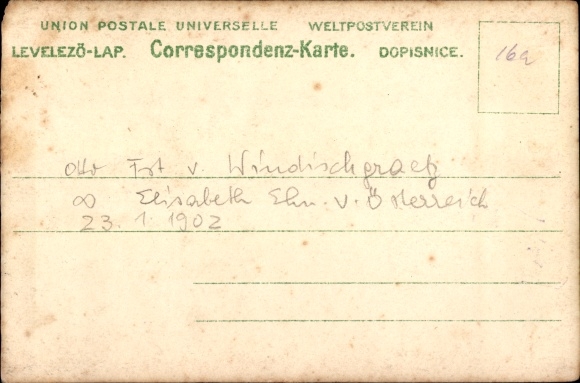 UNION POSTALE UNIVERSELLE WELTPOSTVEREIN
LEVELEZÖ-LAP. Correspondenz-Karte. DOPISNICE.
16a
Otto Fst v. Windischgraetz
∞ Elisabeth Ehn. v. Österreich
23. 1. 1902